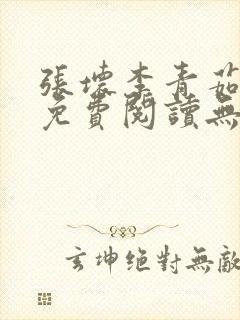 張壞李青茹
免費閱讀無
玄坤絕對無敵